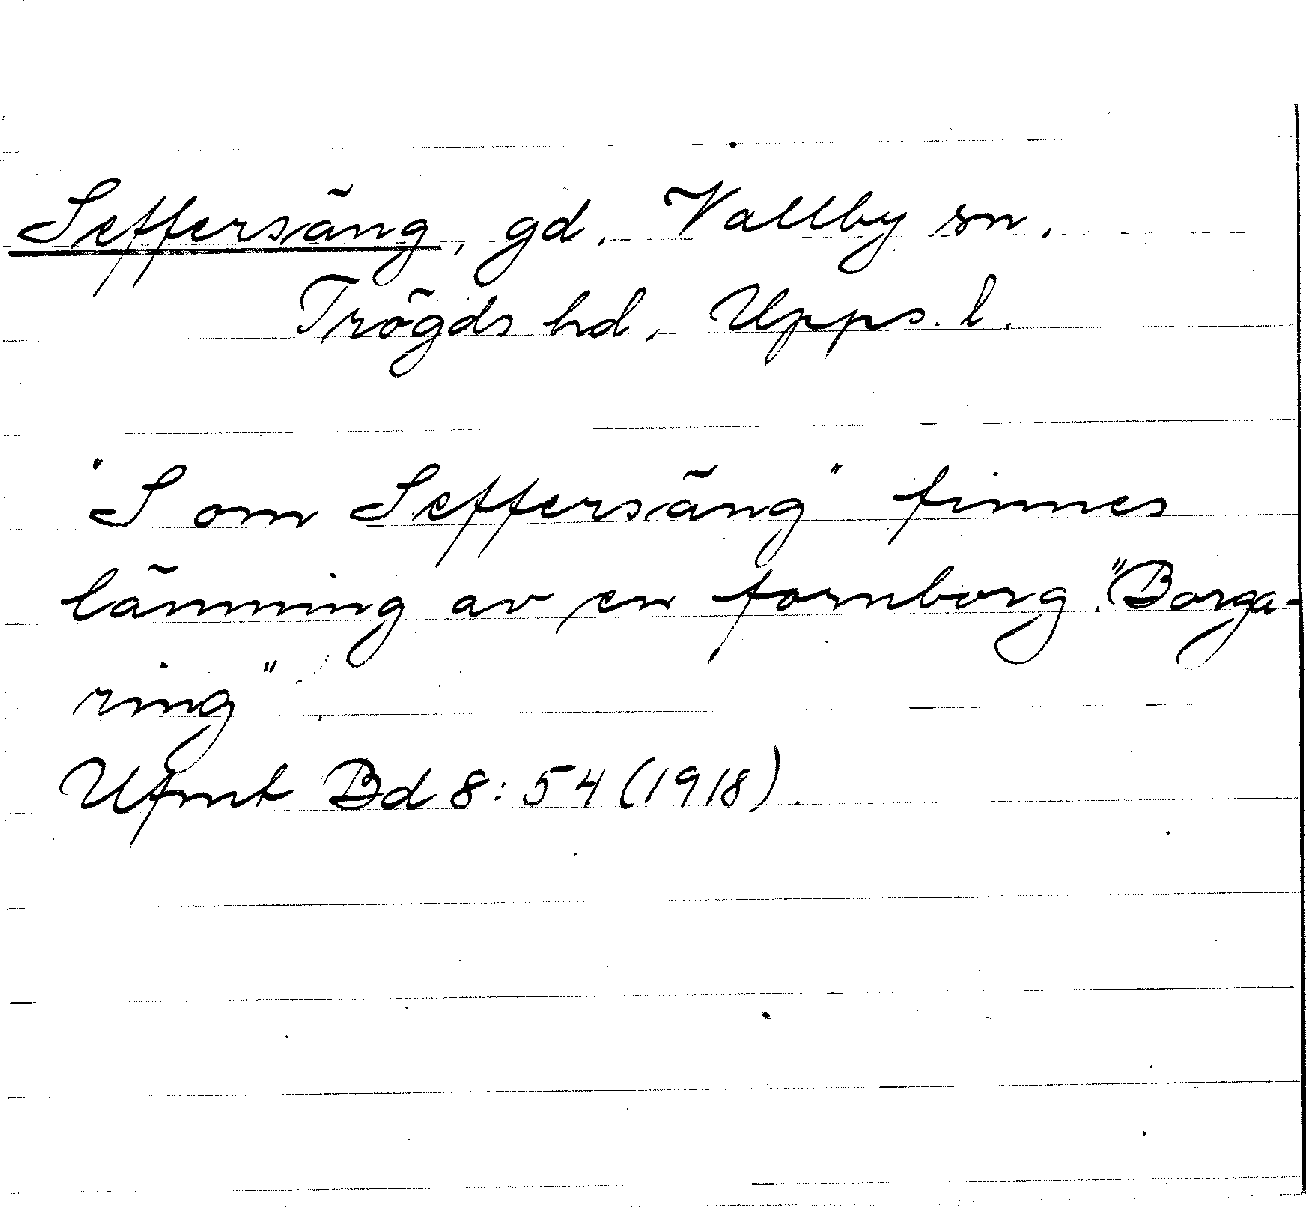 Seffersäng, gd. Vallby sn.
Trögds hd, Upps. l.
"S om Seffersäng" finnes
lämning av en fornborg. "Borga-
ring"
Ufmt Bd 8: 54 (1918)